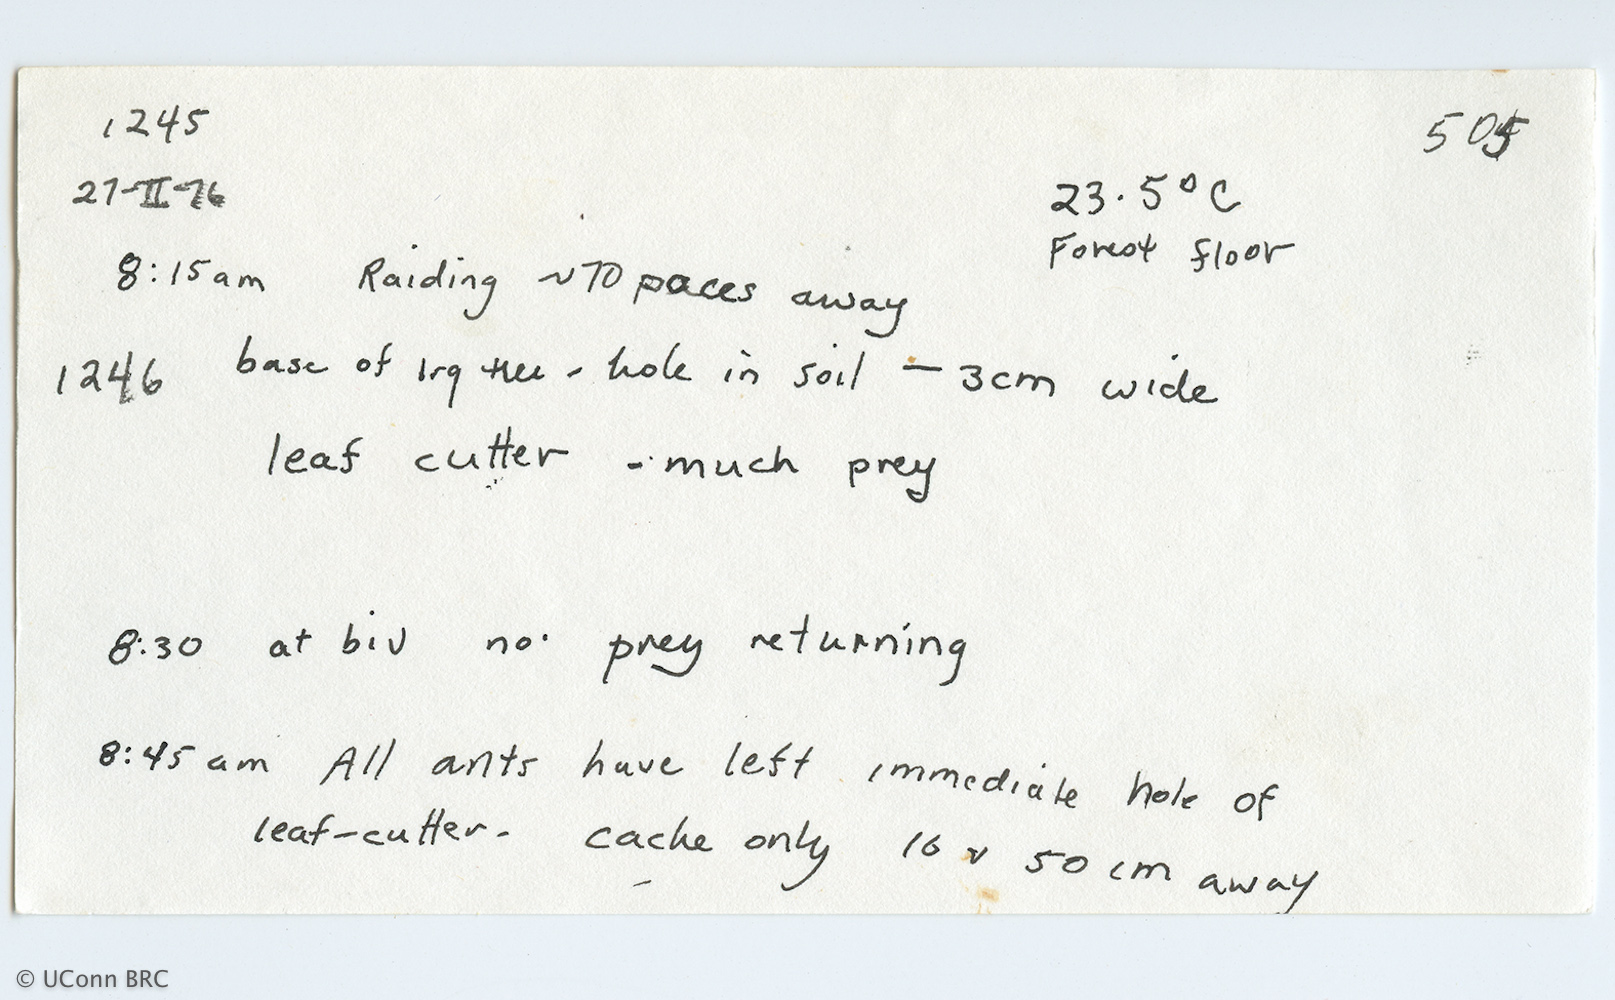 1245
505
27-II-76
23.5°C
Forest floor
8:15am Raiding ~70 paces away
1246 base of lrg tree - hole in soil - 3cm wide
leaf cutter - much prey
8:30 at biv no prey returning
8:45 am All ants have left immediate hole of
leaf-cutter- cache only 50 cm away
© UConn BRC